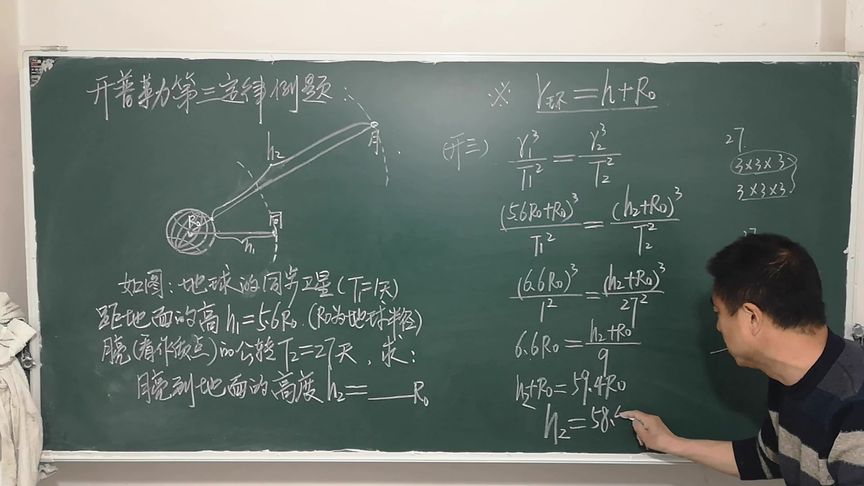 开普勒第三定律例题:
h₂
月
R₀
同
h₁
如图:地球的同步卫星(T₁=1天)
距地面的高h₁=5.6R₀.(R₀为地球半径)
月亮(看作质点)的公转T₂=27天,求:
月亮到地面的高度h₂=___R₀
※ r环=h+R₀
(开三) r₁³/T₁²=r₂³/T₂²
(5.6R₀+R₀)³/T₁²=(h₂+R₀)³/T₂²
(6.6R₀)³/1²=(h₂+R₀)³/27²
6.6R₀=(h₂+R₀)/9
h₂+R₀=59.4R₀
h₂=58.4
27
3×3×3
3×3×3
27